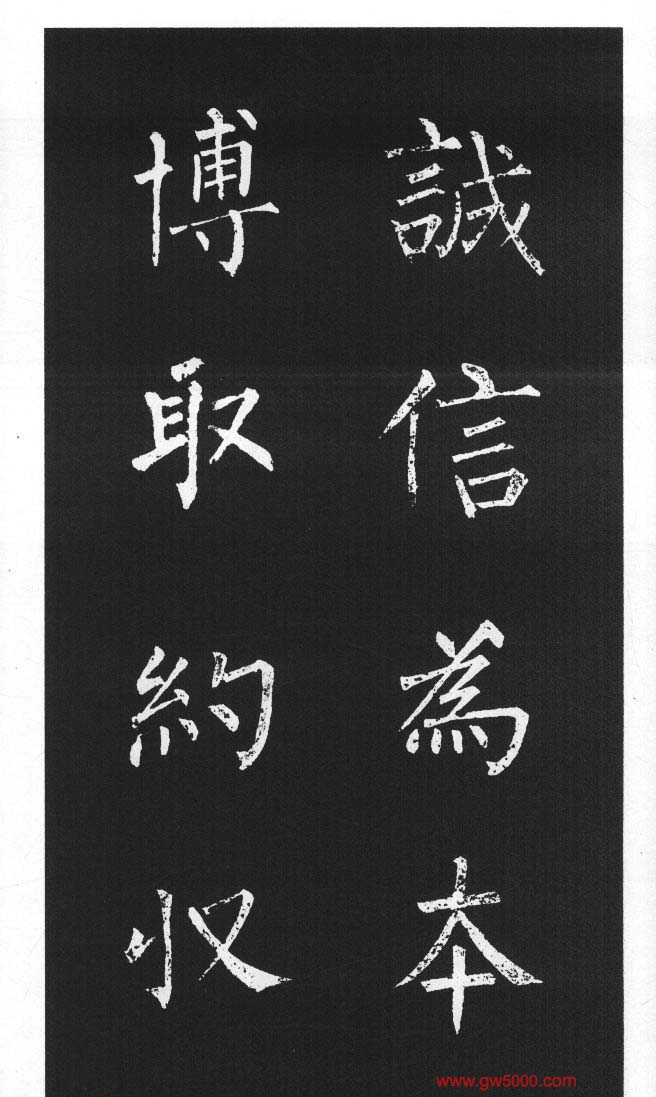 誠信為本
博取約收
www.gw5000.com